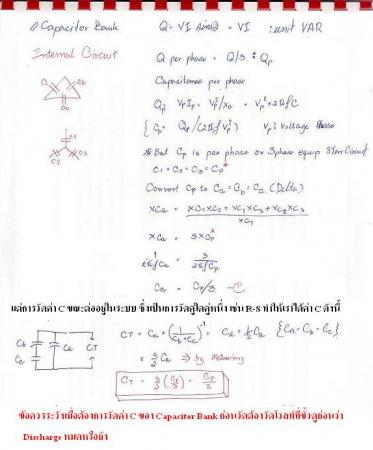 Capacitor Bank Q = VI sinθ = VI : unit VAR
Internal Circuit
Q per phase = Q/3 = Qp
Ca Cb
Ca
Capacitance per phase
Qp = VpIp = Vp²/Xc = Vp² × 2πfC
{ Cp = Qp/(2πf Vp²) Vp: Voltage Phase
C1
C2 C3
** But Cp is per phase or 3phase equip Star Circuit
C1 = C2 = C3 = Cp*
Convert Cp to Ca = Cb = Cc (Delta)
XCa = XC1XC2 + XC1XC3 + XC2XC3
XC1
XCa = 3XCp*
Ca = 3
2πf Cp
Ca = Cp/3 - ①
แต่การวัดค่า C ขณะต่ออยู่ในระบบ ซึ่งเป็นการวัดคู่ใดคู่หนึ่ง เช่น R-S ทำให้เราได้ค่า C ดังนี้
Cb Ca CT
Cc
CT = Ca + (1/Cb+Cc)⁻¹ = Ca + ½Ca {Ca = Cb = Cc}
= 3/2 Ca ⇒ by Measuring
CT = 3/2 (Cp/3) = Cp/2
ข้อควรระวังเมื่อต้องการวัดค่า C ของ Capacitor Bank ก่อนวัดต้องวัดโวลท์ที่ขั้วดูก่อนว่า
Discharge หมดหรือยัง